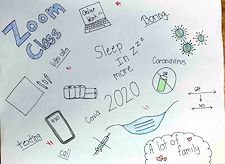 Zoom
Class
Online
Work
Boring
Sleep
In zzz
more
Coronavirus
2020
Covid
texting
Call
A lot of
family